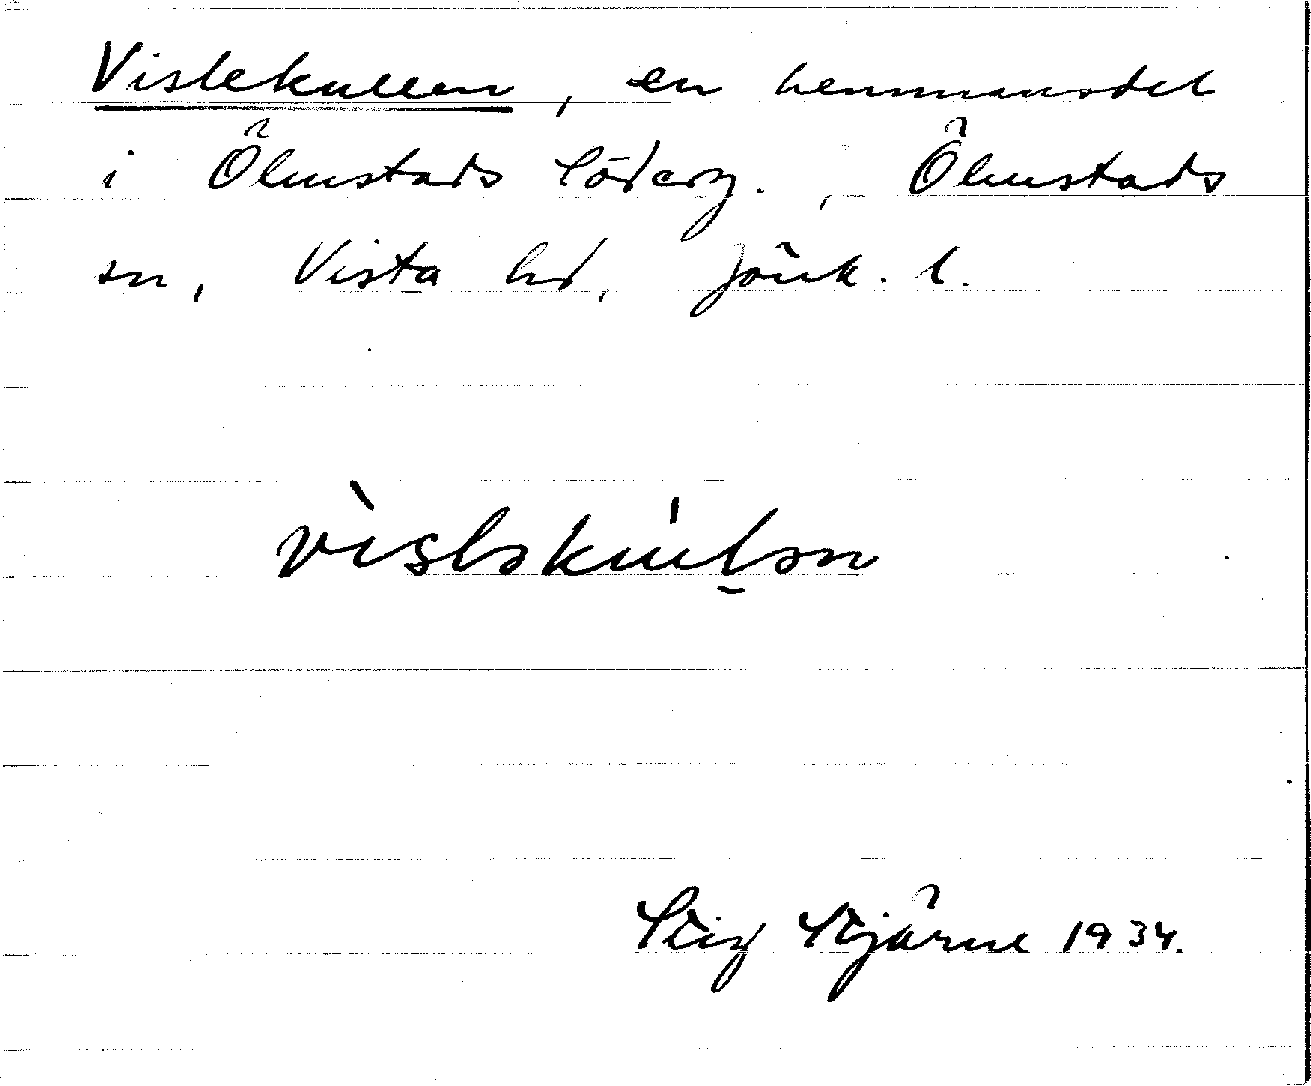 Vislekullen, en hemmansdel
i Ölmstads Söderg., Ölmstads
sn, Vista hd, Jönk. l.
vìsləkúl̠ən
Stig Stjärne 1934.